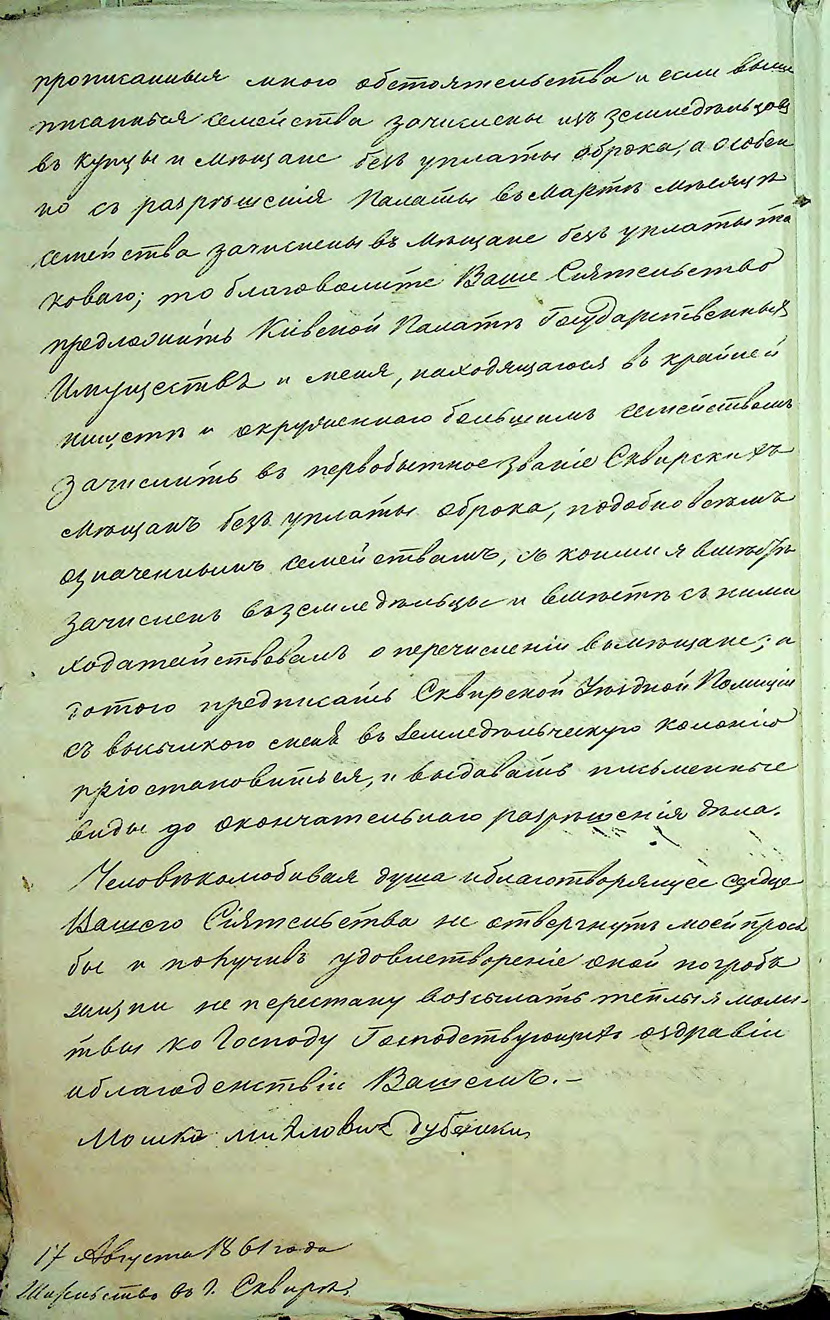 прописанныя мною обстоятельства и если выше
писанныя семейства зачислены изъ земледѣльцовъ
въ купцы и мѣщане безъ уплаты оброка, а особен
но съ разрѣшенія Палаты въ Мартѣ мѣсяцѣ
семейства зачислены въ мѣщане безъ уплаты та
коваго; то благоволите Ваше Сіятельство
предложить Кіевской Палатѣ Государственныхъ
Имуществъ и меня, находящагося въ крайней
нищетѣ и окруженнаго большимъ семействомъ
зачислить въ первобытное званіе Сквирскихъ
мѣщанъ безъ уплаты оброка, подобно всѣмъ
означеннымъ семействамъ, съ коими я вмѣстѣ
зачисленъ въ земледѣльцы и вмѣстѣ съ ними
ходатайствовалъ о перечисленіи въ мѣщане; а
до того предписать Сквирской Уѣздной Полиціи
съ высылкою меня въ Земледѣльческую колонію
пріостановиться, и выдавать письменные
виды до окончательнаго разрѣшенія дѣла.
Человѣколюбивая душа и благотворящее сердце
Вашего Сіятельства не отвергнутъ моей прось
бы и получивъ удовлетвореніе оной по гробъ
жизни не перестану возсылать теплыя моли-
твы ко Господу Господствующихъ о здравіи
и благоденствіи Вашемъ.–
Мошко
17 Августа 1861 года
Жительство въ г. Сквирѣ,